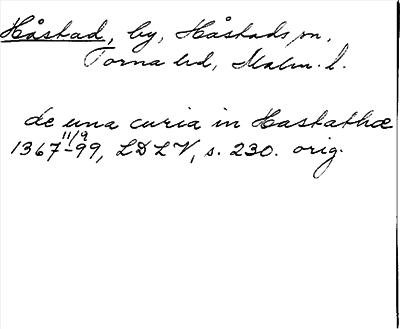 Håstad, by, Håstads sn,
Torna hd, Malm. l.
de una curia in Hastathæ
1367 11/9 -99, LDLV, s. 230. orig.